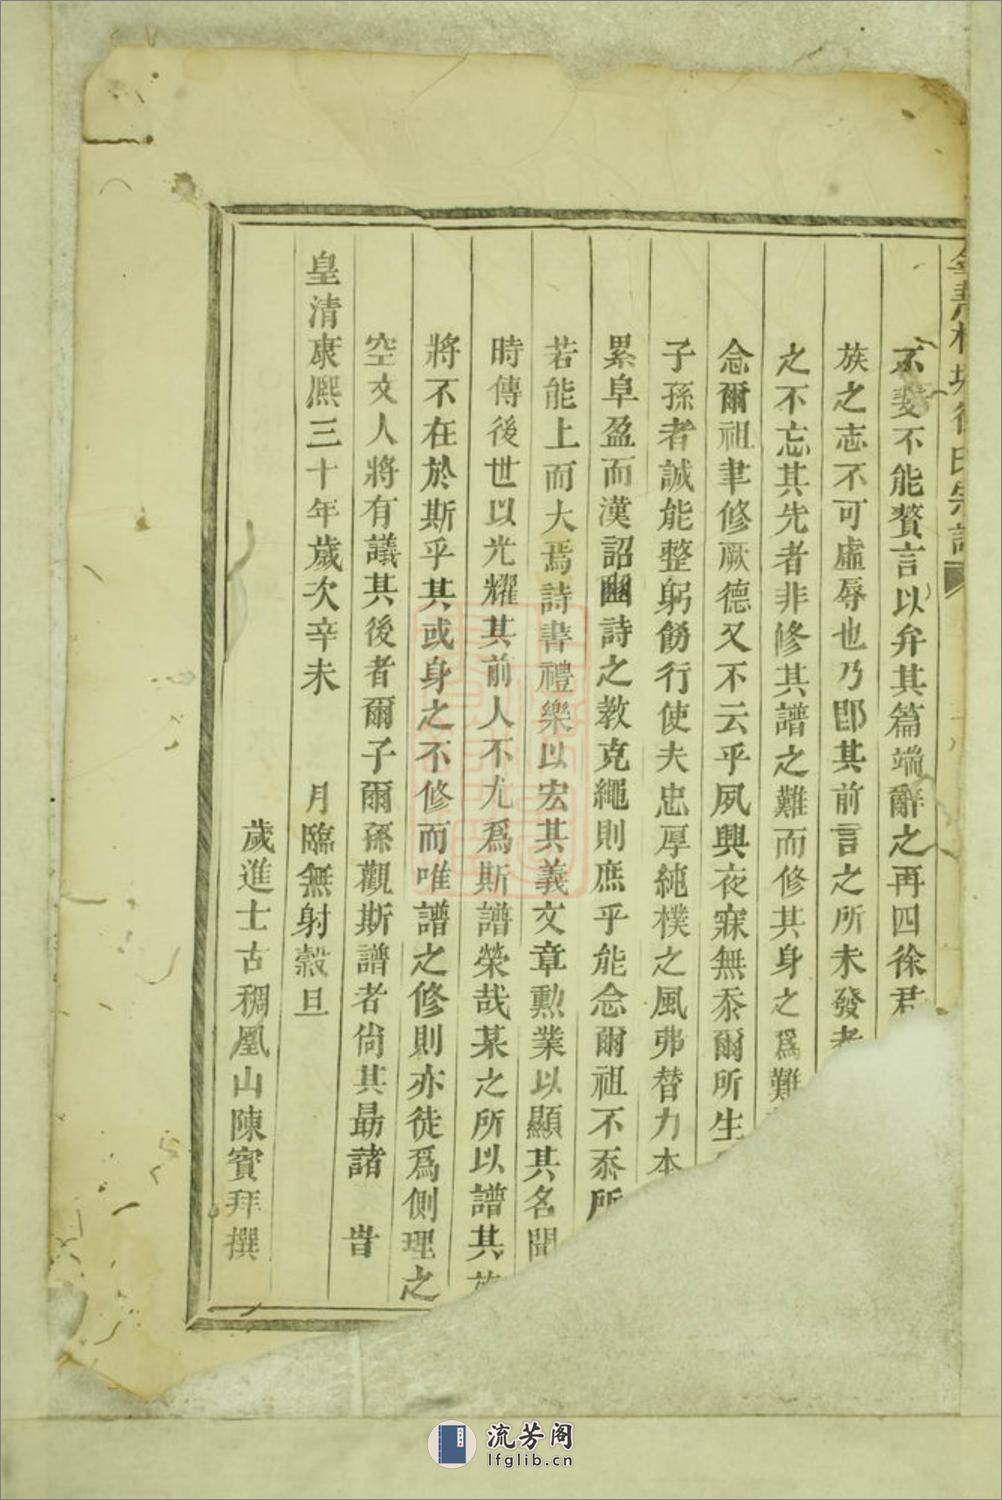 不斐不能贅言以弁其篇端辭之再四徐君
族之志不可虛辱也乃卽其前言之所未發者
之不忘其先者非修其譜之難而修其身之爲難
念爾祖聿修厥德又不云乎夙興夜寐無忝爾所生
子孫者誠能整躬飭行使夫忠厚純樸之風弗替力本
累阜盈而漢詔豳詩之教克繩則庶乎能念爾祖不忝所
若能上而大焉詩書禮樂以宏其義文章勳業以顯其名聞
時傳後世以光耀其前人不尤爲斯譜榮哉某之所以譜其族
將不在於斯乎其或身之不修而唯譜之修則亦徒爲側理之
空文人將有議其後者爾子爾孫觀斯譜者尙其勗諸 旹
皇清康熈三十年歲次辛未 月臨無射穀旦
歲進士古稠凰山陳賓拜撰
流芳阁
lfglib.cn